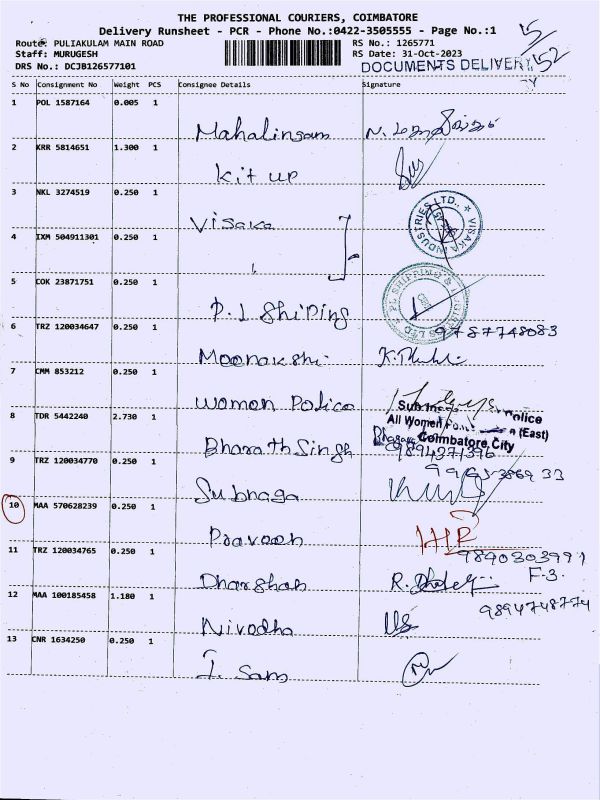 THE PROFESSIONAL COURIERS, COIMBATORE
Delivery Runsheet - PCR - Phone No.:0422-3505555 - Page No.:1
Route: PULIAKULAM MAIN ROAD RS No.: 1265771
Staff: MURUGESH RS Date: 31-Oct-2023
DRS No.: DCJB126577101 DOCUMENTS DELIVERY
15/152
S No Consignment No Weight PCS Consignee Details Signature
1 POL 1587164 0.005 1
Mahalingam
2 KRR 5814651 1.300 1
Kit up
3 NKL 3274519 0.250 1
Visaka
VISAKA INDUSTRIES LTD.
4 IXM 504911301 0.250 1
5 COK 23871751 0.250 1
P.L Shiping
6 TRZ 120034647 0.250 1 9787748083
Moonakshi
7 CMM 853212 0.250 1
Women Police
All Women
(East)
8 TDR 5442240 2.730 1 Coimbatore City
Bharath Singh 9894371396
9 TRZ 120034770 0.250 1
Subhaga
10 MAA 570628239 0.250 1
Praveen
11 TRZ 120034765 0.250 1 9890303991
Dharshan F-3.
12 MAA 100185458 1.180 1 9894748774
Nivodha
13 CNR 1634250 0.250 1
J. Sam